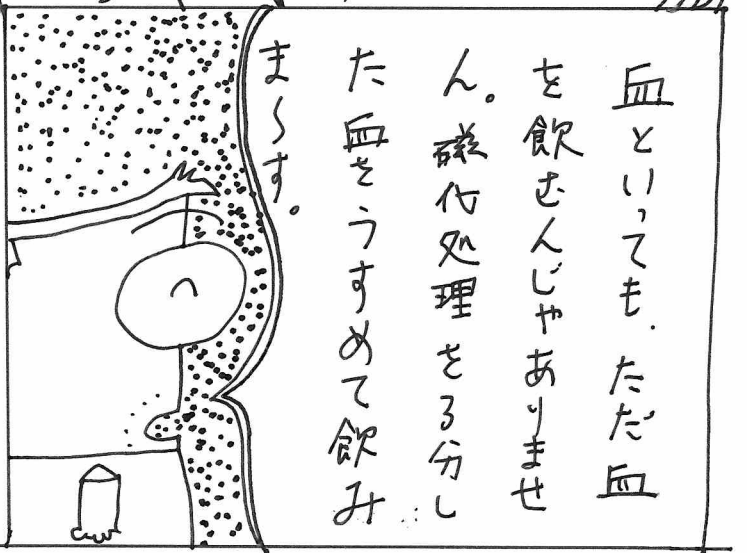 血といっても、ただ血
を飲むんじゃありませ
ん。磁化処理を3分し
た血をうすめて飲み
ま〜す。